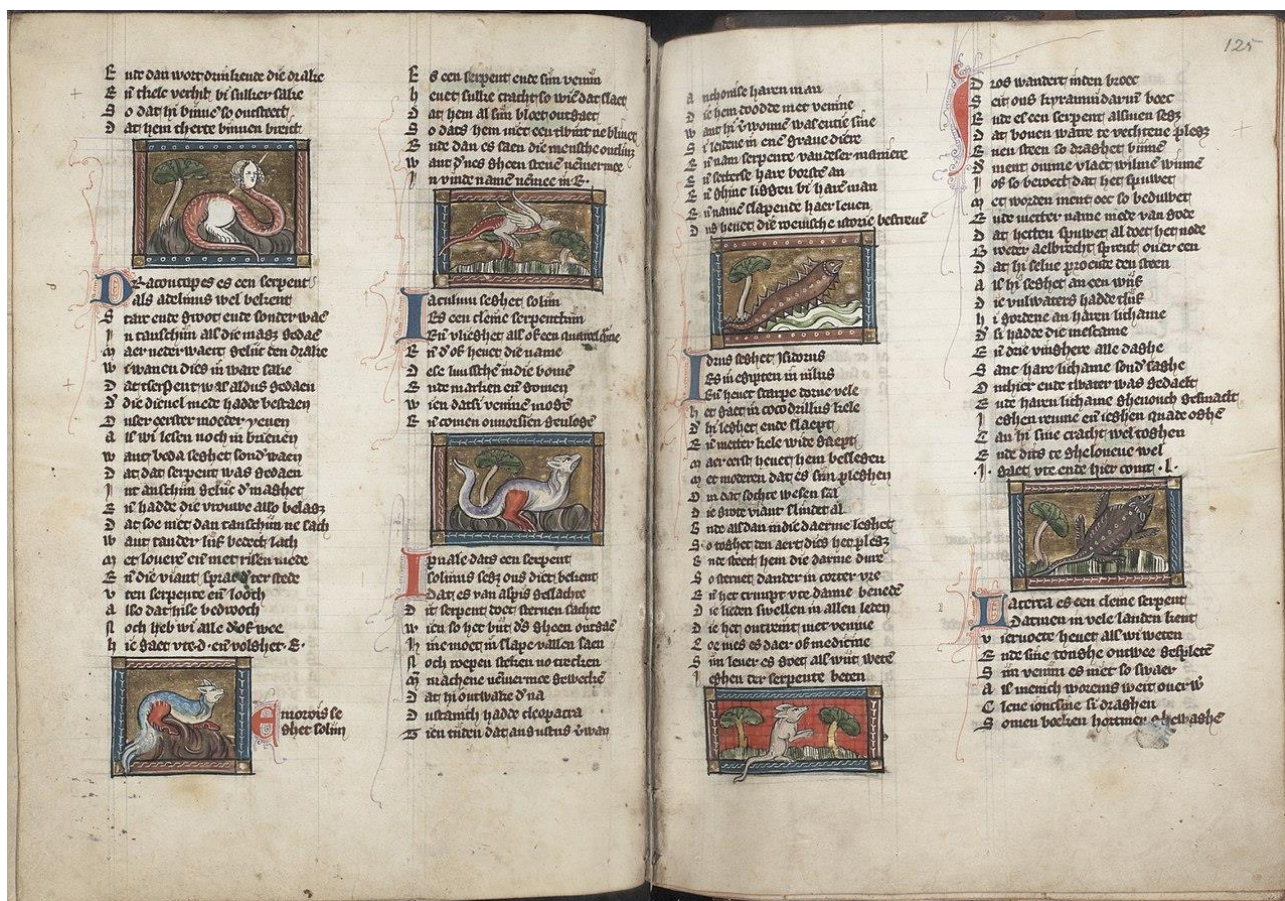 125
E nde dan wort drinkende die drake
E n̄ thele verhit bi sulker sake
S o dat hi binnē so ontsteect
D at hem therte binnen breict
D Racontopes es een serpent
als adelinus wel bekent
S tarc ende groot ende sonder waē
I n tanschijn als die maget gedaē
M aer neder waert gelijc den drake
W i wanen dies in ware sake
D at tserpent was aldus gedaen
D' die duuel mede hadde bestaen
O nser eerster moeder yeuen
A ls wi lesen noch in brieuen
W ant beda seghet sond' waen
D at dat serpent was gedaen
I nt anschijn gelijc d' maghet
E n̄ hadde die vrouwe also belaget
D at soe niet dan tanschijn ne sach
W ant tander lijf bedect lach
M et louere en̄ met risen mede
E n̄ die viant sprac ter stede
V ten serpente en̄ looch
A lso dat hise bedrooch
N och heb wi alle d'of wee
H ie gaet vte d. en̄ volghet E.
E morois se
ghet solijn
E s een serpent ende sijn venijn
H euet sulke cracht so wiē dat slaet
D at hem al sijn bloet ontgaet
S o dats hem niet een twint ne bliuet
E nde dan es saen die mensche ontliuet
W ant d'nes gheen steruē nēmermee
I n vinde namē nēmee in E.
I aculum seghet solijn
Es een cleine serpentkijn
En̄ vlieghet als oft een
E n̄ d'of heuet die name
D ese luusche in die bomē
E nde marken en̄ gomen
W ien datsi veninē mogē
E n̄ comen onuorsien geulogē
I pnale dats een serpent
solinus seget ons diet bekent
Dat es van aspis geslachte
D it serpent doet steruen sachte
W ien so het bijt d's gheen ontgaē
H ine moet in slape vallen saen
N och roepen steken no trecken
M machene nēmermee gewecken
D at hi ontwake d'na
D usdanich hadde cleopatra
T ien tiden dat augustus v'wan
A nthonise haren man
D ie hem doodde met venine
W ant hi v'wonnē was entie sine
S i leidene in ene graue diere
E n̄ nam serpente van deser maniere
E n̄ settese hare borste an
E n̄ ghinc ligghen bi haren man
E n̄ namē slapende haer leuen
D us heuet die roemsche istorie bescreuē
I drus seghet ysidorus
Es in egipten in nilus
En̄ heuet scarpe dorne vele
H et gaet in cocodrillus kele
D' hi leghet ende slaept
E n̄ metter kele wide gaept
M aer eerst heuet hem besleghen
M et moderen dat es sijn pleghen
O m dat sochte wesen sal
D ie grote viant slindet al
E nde alsdan in die daerme leghet
S o toghet den aert dies het pleget
E nde steect hem die darme dure
S o steruet dander in corter vre
E n̄ het crupt vte darme benedē
D ie lieden swellen in allen leden
D ie het ontreint met venine
C oemes es daer of medicine
S ijn leuer es goet als wijt wetē
I eghen ter serpente beten
D ros wandert inden broec
Seit ons kyramidarum boec
E nde es een serpent alsmen seget
D at bouen watre te vechtene pleget
E nen steen so draghet binnē
D' ment omme vlaet wilmē winnē
I of so beweect dat het spuwet
M et worden ment oec so beduwet
E nde metter name mede van gode
D at hetten spuwet al doet het node
B roeder aelbrecht sprect ouer een
D at hi selue proeuede den steen
A ls hi seghet an een wijf
D ie vul waters hadde tlijf
H i gordene an haren lichame
D' si hadde die mesquame
E n̄ drie vinghere alle daghe
S anc hare lichame sond' saghe
D nhier ende twater was gedaelt
E nde haren lichame ghenouch gesmaelt
I eghen renne en̄ ieghen quade oghē
C an hi sine cracht wel toghen
E nde dits te gheloeuene wel
.I. gaet vte ende hier comt .L.
L acerta es een cleine serpent
Datmen in vele landen kent
V iervoete heuet als wi weten
E nde sine tonghe ontwee gespletē
S ijn venijn es niet so swaer
A ls menich worems weit ouer w'
C lene ioncskine si draghen
S omen boeken hort mer ghewaghē